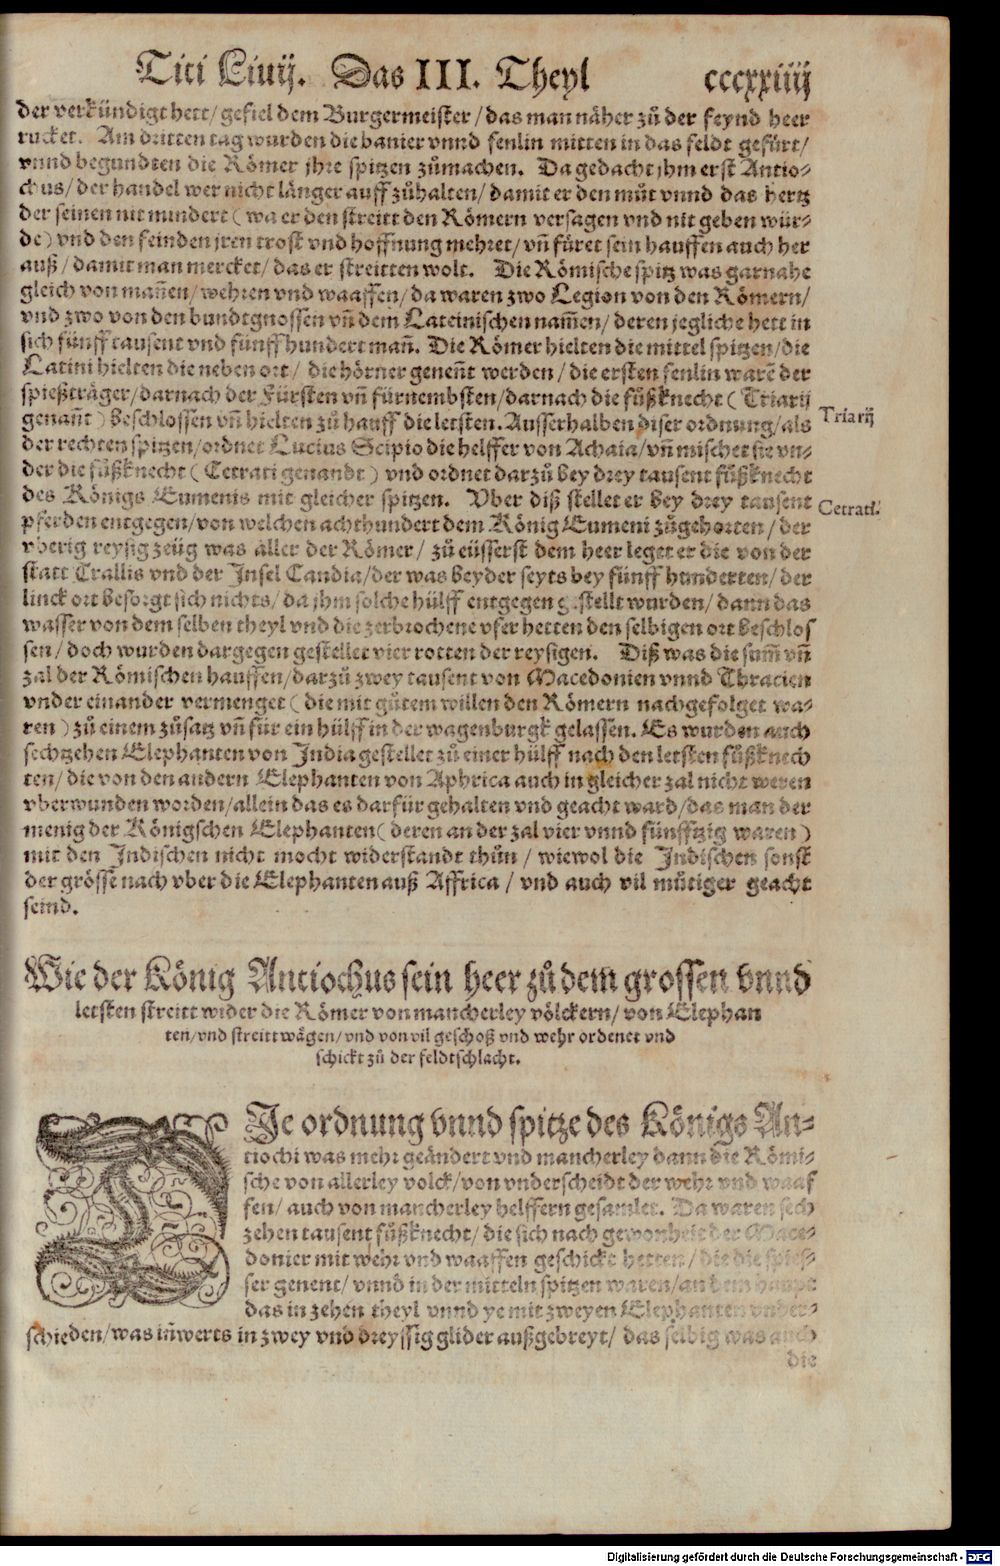 Titi Liuij. Das III. Theyl cccxxiiij
der verkündigt hett/ gefiel dem Burgermeister/ das man näher zů der feynd heer
rucket. Am dritten tag wurden die banier vnnd fenlin mitten in das feldt gefürt/
vnnd begundten die Römer jhre spitzen zůmachen. Da gedacht jhm erst Antio-
chus/ der handel wer nicht länger auff zůhalten/ damit er den můt vnnd das hertz
der seinen nit mindert (wa er den streitt den Römern versagen vnd nit geben wür-
de) vnd den feinden jren trost vnd hoffnung mehret/ vñ füret sein hauffen auch her
auß/ damit man mercket/ das er streitten wolt. Die Römische spitz was gar nahe
gleich von mañen/ wehren vnd waaffen/ da waren zwo Legion von den Römern/
vnd zwo von den bundtgnossen vñ dem Lateinischen nam̃en/ deren jegliche hett in
sich fünff tausent vnd fünff hundert mañ. Die Römer hielten die mittel spitzen/ die
Latini hielten die neben ort/ die hörner geneñt werden/ die ersten fenlin warẽ der
spießträger/ darnach der Fürsten vñ fürnembsten/ darnach die fůßknecht (Triarij
genañt) beschlossen vñ hielten zů hauff die letsten. Ausserhalben diser ordnung/ als
Triarij
der rechten spitzen/ ordnet Lucius Scipio die helffer von Achaia/ vñ mischet sie vn-
der die fůßknecht (Cetrati genandt) vnd ordnet darzů bey drey tausent fůßknecht
des Königs Eumenis mit gleicher spitzen. Vber diß stellet er bey drey tausent
Cetrati.
pferden entgegen/ von welchen achthundert dem König Eumeni zůgehorten/ der
vberig reysig zeüg was aller der Römer/ zů eüsserst dem heer leget er die von der
statt Trallis vnd der Insel Candia/ der was beyder seyts bey fünff hunderten/ der
linck ort besorgt sich nichts/ da jhm solche hülff entgegen gestellt wurden/ dann das
wasser von dem selben theyl vnd die zerbrochene vfer hetten den selbigen ort beschlos
sen/ doch wurden dargegen gestellet vier rotten der reysigen. Diß was die sum̃ vñ
zal der Römischen hauffen/ darzů zwey tausent von Macedonien vnnd Thracien
vnder einander vermenget (die mit gůtem willen den Römern nachgefolget wa-
ren) zů einem zůsatz vñ für ein hülff in der wagenburgk gelassen. Es wurden auch
sechtzehen Elephanten von India gestellet zů einer hülff nach den letsten fůßknech
ten/ die von den andern Elephanten von Aphrica auch in gleicher zal nicht weren
vberwunden worden/ allein das es darfür gehalten vnd geacht ward/ das man der
menig der Königschen Elephanten (deren an der zal vier vnnd fünfftzig waren)
mit den Indischen nicht mocht widerstandt thůn/ wiewol die Indischen sonst
der grösse nach vber die Elephanten auß Affrica/ vnd auch vil můtiger geacht
seind.
Wie der König Antiochus sein heer zů dem grossen vnnd
letsten streitt wider die Römer von mancherley völckern/ von Elephan
ten/ vnd streitt wägen/ vnd von vil geschoß vnd wehr ordenet vnd
schickt zů der feldtschlacht.
DIe ordnung vnnd spitze des Königs An-
tiochi was mehr geändert vnd mancherley dann die Römi-
sche von allerley volck/ von vnderscheidt der wehr vnd waaf
fen/ auch von mancherley helffern gesamlet. Da waren sech
zehen tausent fůßknecht/ die sich nach gewonheit der Mace-
donier mit wehr vnd waaffen geschickt hetten/ die die spies-
ser genent/ vnnd in der mitteln spitzen waren/ an dem haupt
das in zehen theyl vnnd ye mit zweyen Elephanten vnder-
schieden/ was iñwerts in zwey vnd dreyssig glider außgebreyt/ das selbig was auch
die
Digitalisierung gefördert durch die Deutsche Forschungsgemeinschaft - DFG